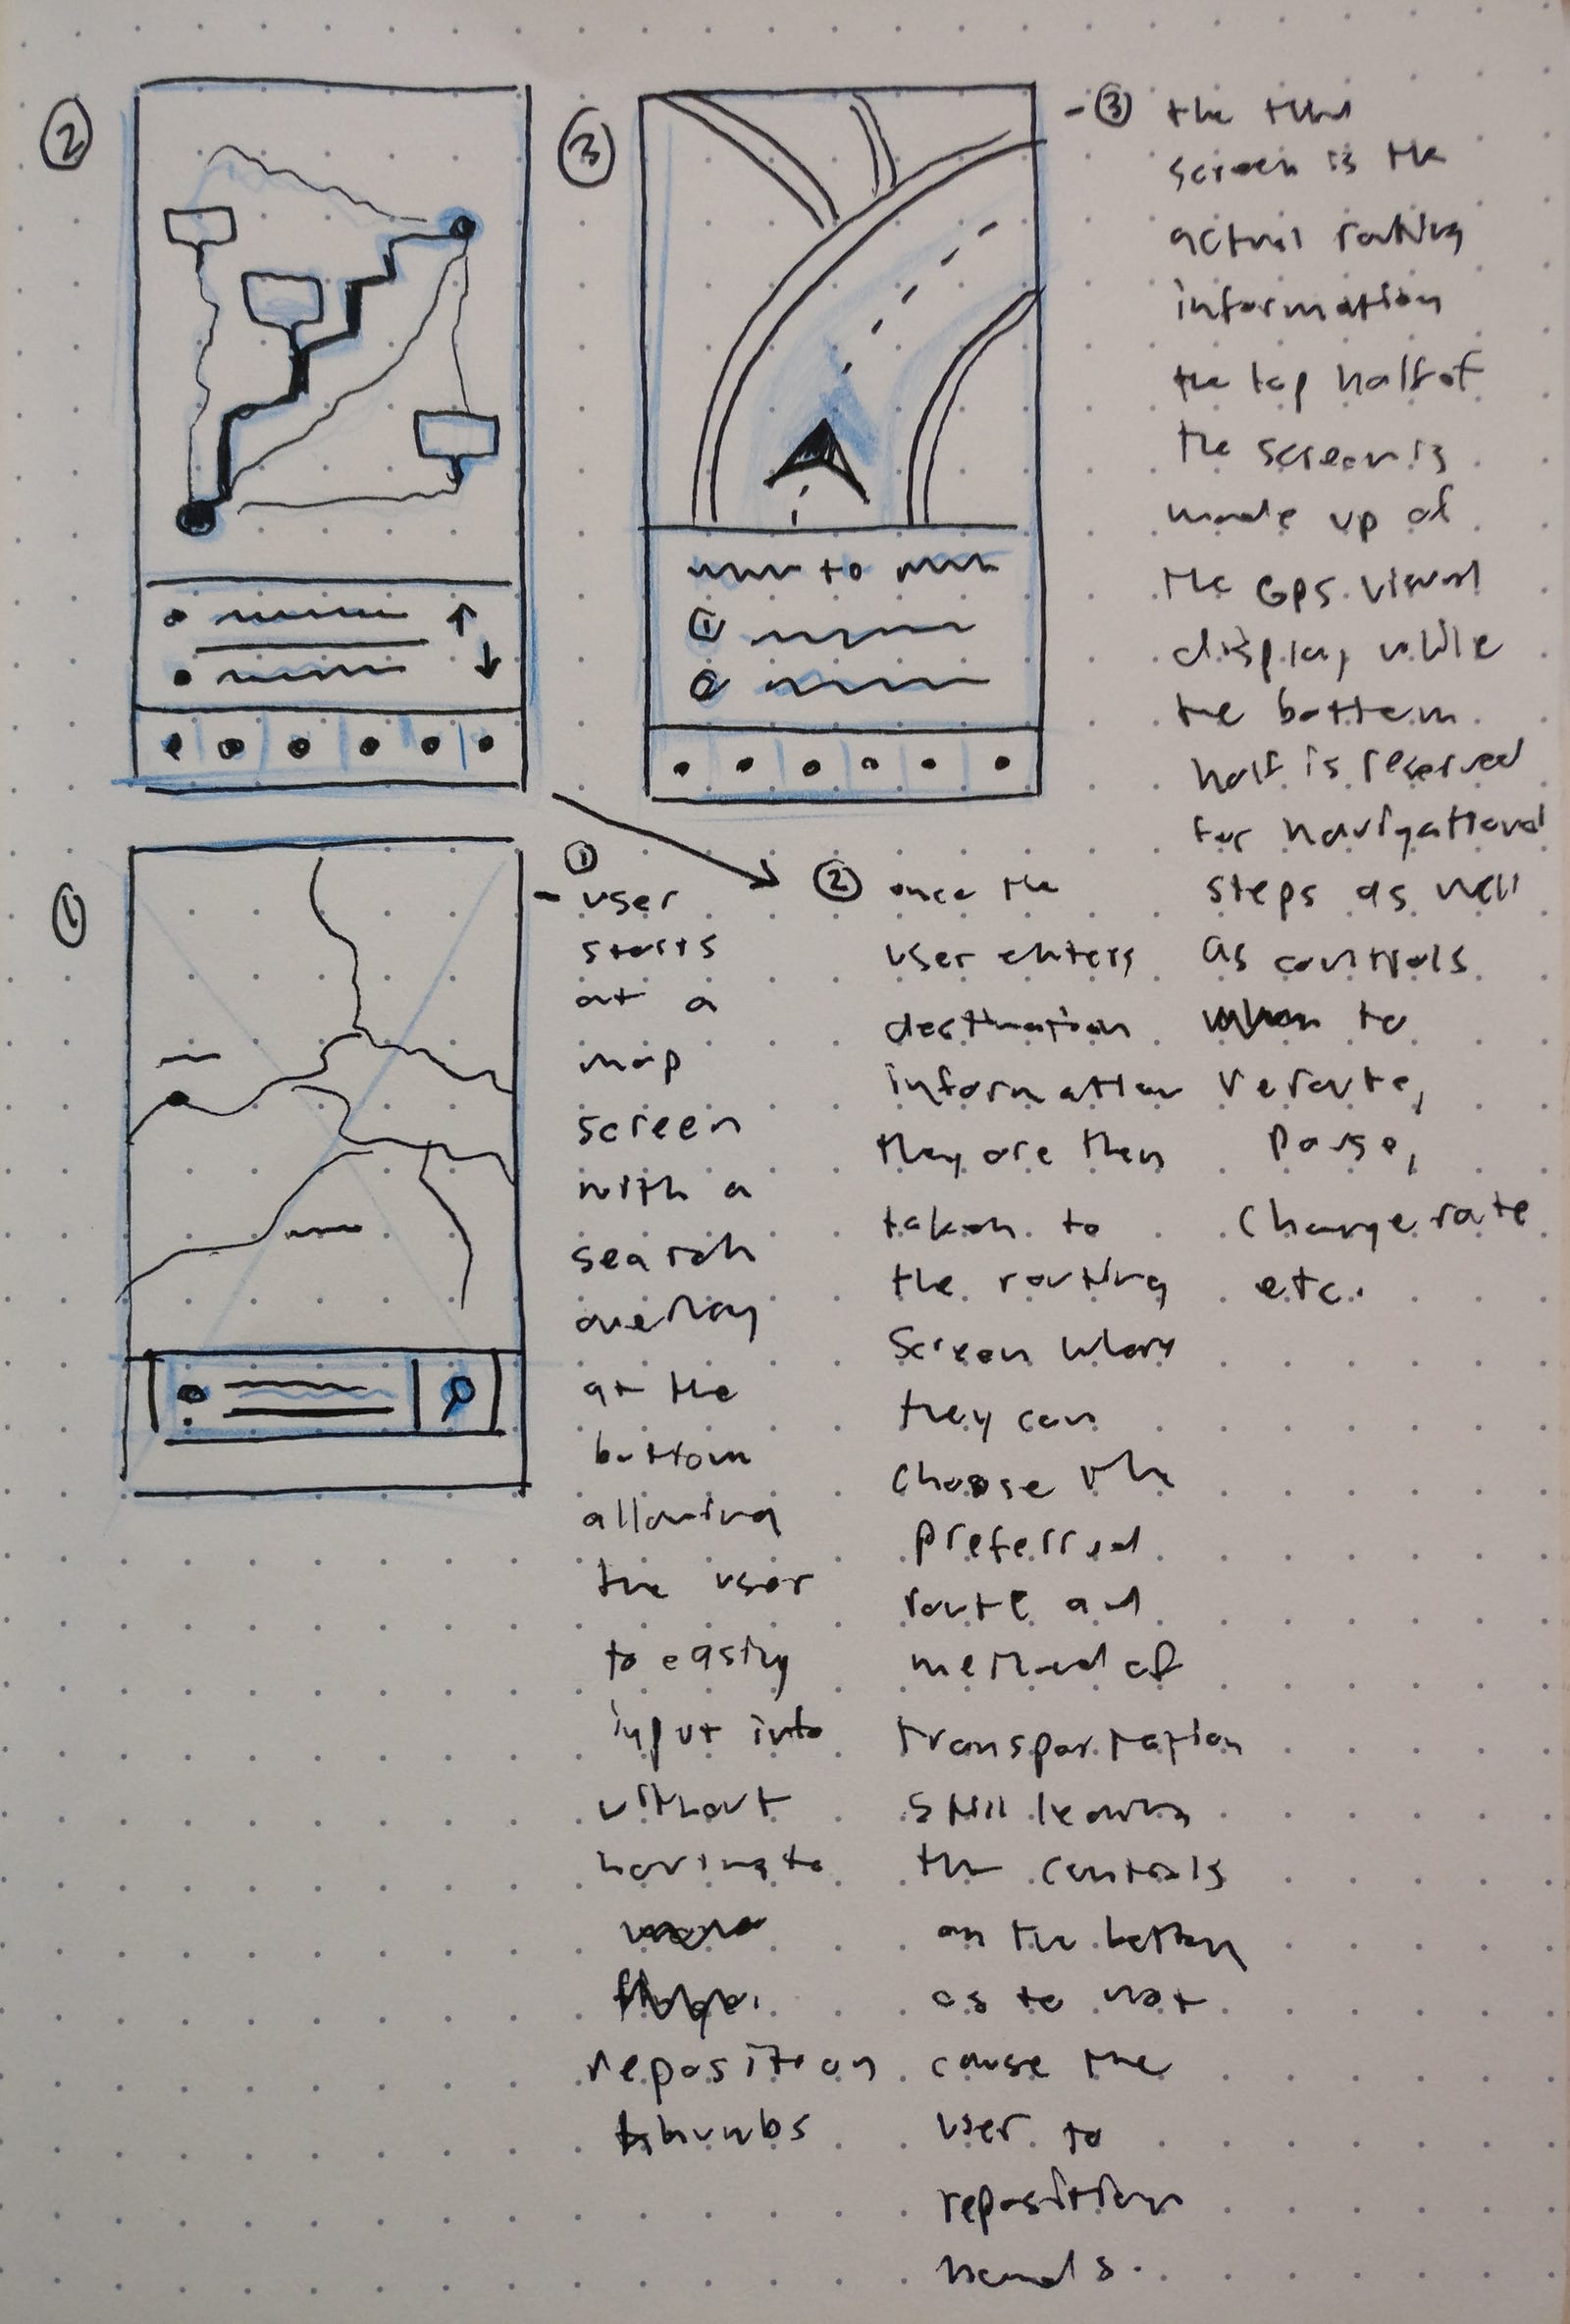 ②
③
①
①
- user
starts
at a
map
screen
with a
search
overlay
at the
bottom
allowing
the user
to easily
input into
without
having to
reposition
thumbs
② once the
user enters
destination
information
they are then
taken to
the routing
screen where
they can
choose
preferred
route and
method of
transportation
still leaving
the controls
on the bottom
as to not
cause the
user to
reposition
hands.
- ③ the third
screen is the
actual routing
information
the top half of
the screen is
made up of
the GPS visual
display while
the bottom
half is reserved
for navigational
steps as well
as controls
to
reroute,
pause,
change rate
etc.
to
①
②